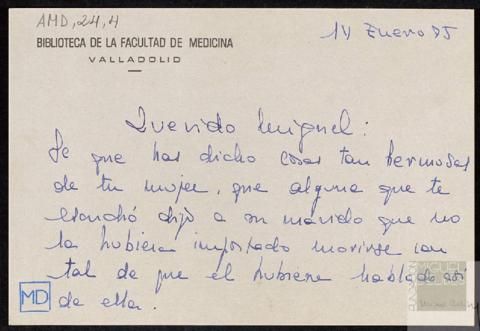 AMD, 24, 4
BIBLIOTECA DE LA FACULTAD DE MEDICINA
VALLADOLID
14 Enero 75
Querido Miguel:
Se que has dicho cosas tan hermosas
de tu mujer, que alguna que te
escuchó dijo a su marido que no
la hubiera importado morirse con
tal de que el hubiese hablado así
de ella.
MD
FUNDACIÓN
MIGUEL
DELIBES